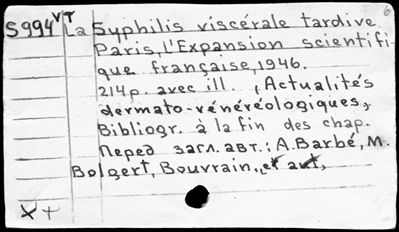 S994 VT La Syphilis viscérale tardive.
Paris, l'Expansion scientifi-
que française, 1946.
214p. avec ill. (Actualités
dermato-vénéréologiques,
Bibliogr. à la fin des chap.
Перед загл. авт.: A. Barbé, M.
Bolgert, Bouvrain, et aut.
X +
6